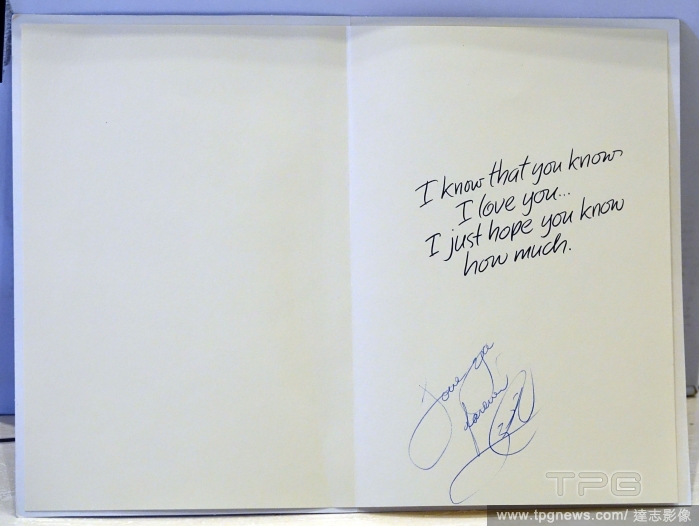 I know that you know
I love you...
I just hope you know
how much.
Love ya
forever
TPG
www.tpgnews.com/ 達志影像